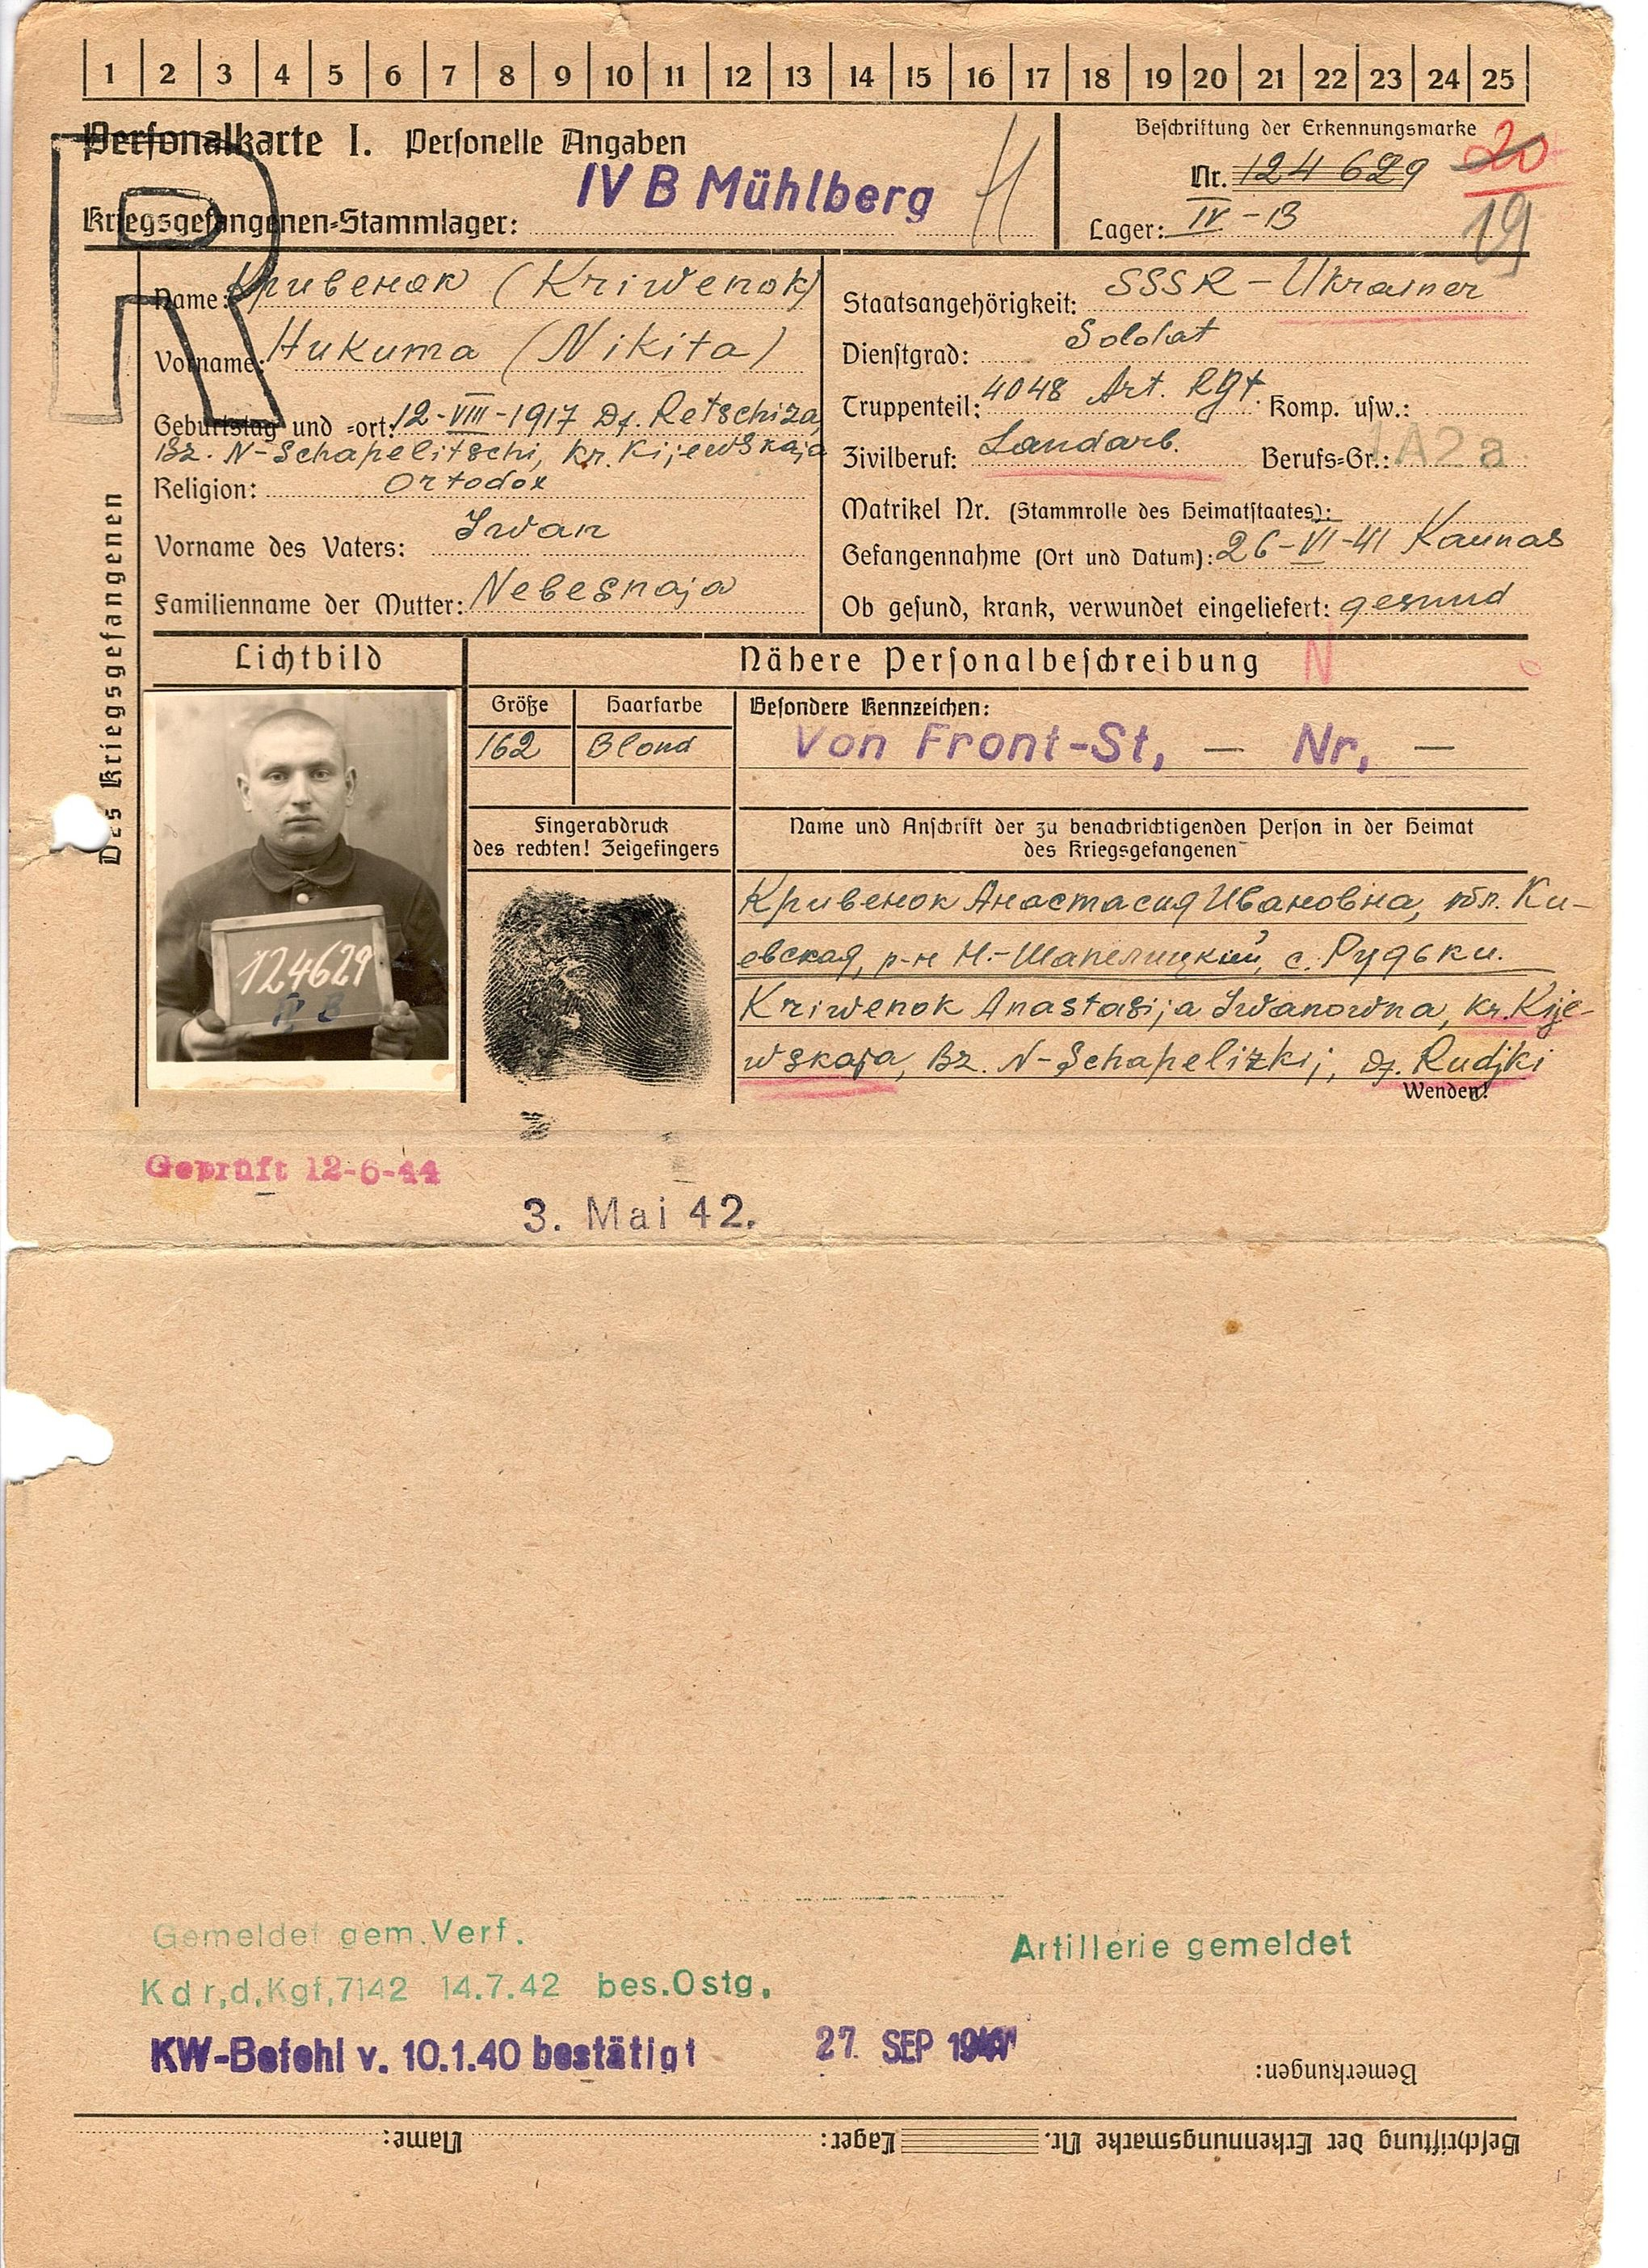 1 2 3 4 5 6 7 8 9 10 11 12 13 14 15 16 17 18 19 20 21 22 23 24 25
Personalkarte I. Personelle Angaben
IV B Mühlberg
Kriegsgefangenen-Stammlager:
Beschriftung der Erkennungsmarke
20
Nr. 124 629
Lager: IV - B
19
R
Des Kriegsgefangenen
Name: Кривенок (Kriwenok)
Vorname: Никита (Nikita)
Geburtstag und -ort: 12-VIII-1917 Df. Retschiza,
Bz. N-Schapelitschi, Kr. Kijewskaja
Religion: Ortodox
Vorname des Vaters: Iwan
Familienname der Mutter: Nebesnaja
Staatsangehörigkeit: SSSR - Ukrainer
Dienstgrad: Soldat
Truppenteil: 4048 Art. Rgt. Komp. usw.:
Zivilberuf: Landarb. Berufs-Gr.: 1A2a
Matrikel Nr. (Stammrolle des Heimatstaates):
Gefangennahme (Ort und Datum): 26-VI-41 Kaunas
Ob gesund, krank, verwundet eingeliefert: gesund
Lichtbild
Nähere Personalbeschreibung N
Größe Haarfarbe Besondere Kennzeichen:
162 Blond Von Front-St, — Nr, —
Fingerabdruck
des rechten! Zeigefingers
Name und Anschrift der zu benachrichtigenden Person in der Heimat
des Kriegsgefangenen
124629
IV B
Кривенок Анастасия Ивановна, обл. Ки-
евская, р-н Н.-Шапелицкий, с. Рудьки.
Kriwenok Anastasija Iwanowna, Kr. Kije-
wskaja, Bz. N-Schapelizkij, Df. Rudjki
Wenden!
Geprüft 12-6-44
3. Mai 42.
Gemeldet gem. Verf.
Artillerie gemeldet
Kdr,d,Kgf,7142 14.7.42 bes.Ostg,
KW-Befehl v. 10.1.40 bestätigt 27. SEP
Bemerkungen:
Beschriftung der Erkennungsmarke Nr. Lager: Name: